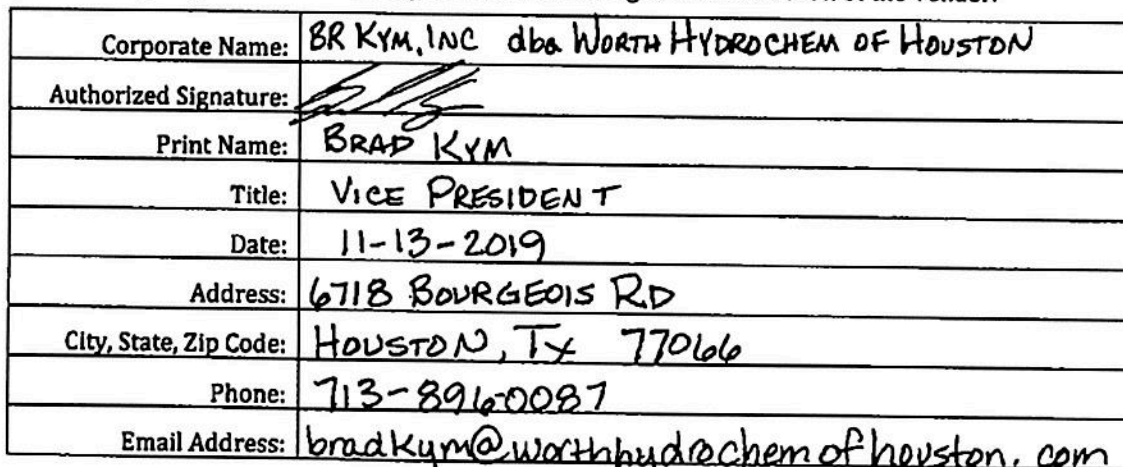 Corporate Name: BR KYM, INC dba WORTH HYDROCHEM OF HOUSTON
Authorized Signature:
Print Name: BRAD KYM
Title: VICE PRESIDENT
Date: 11-13-2019
Address: 6718 BOURGEOIS RD
City, State, Zip Code: HOUSTON, TX 77066
Phone: 713-896-0087
Email Address: bradkym@worthhydrochemofhouston.com